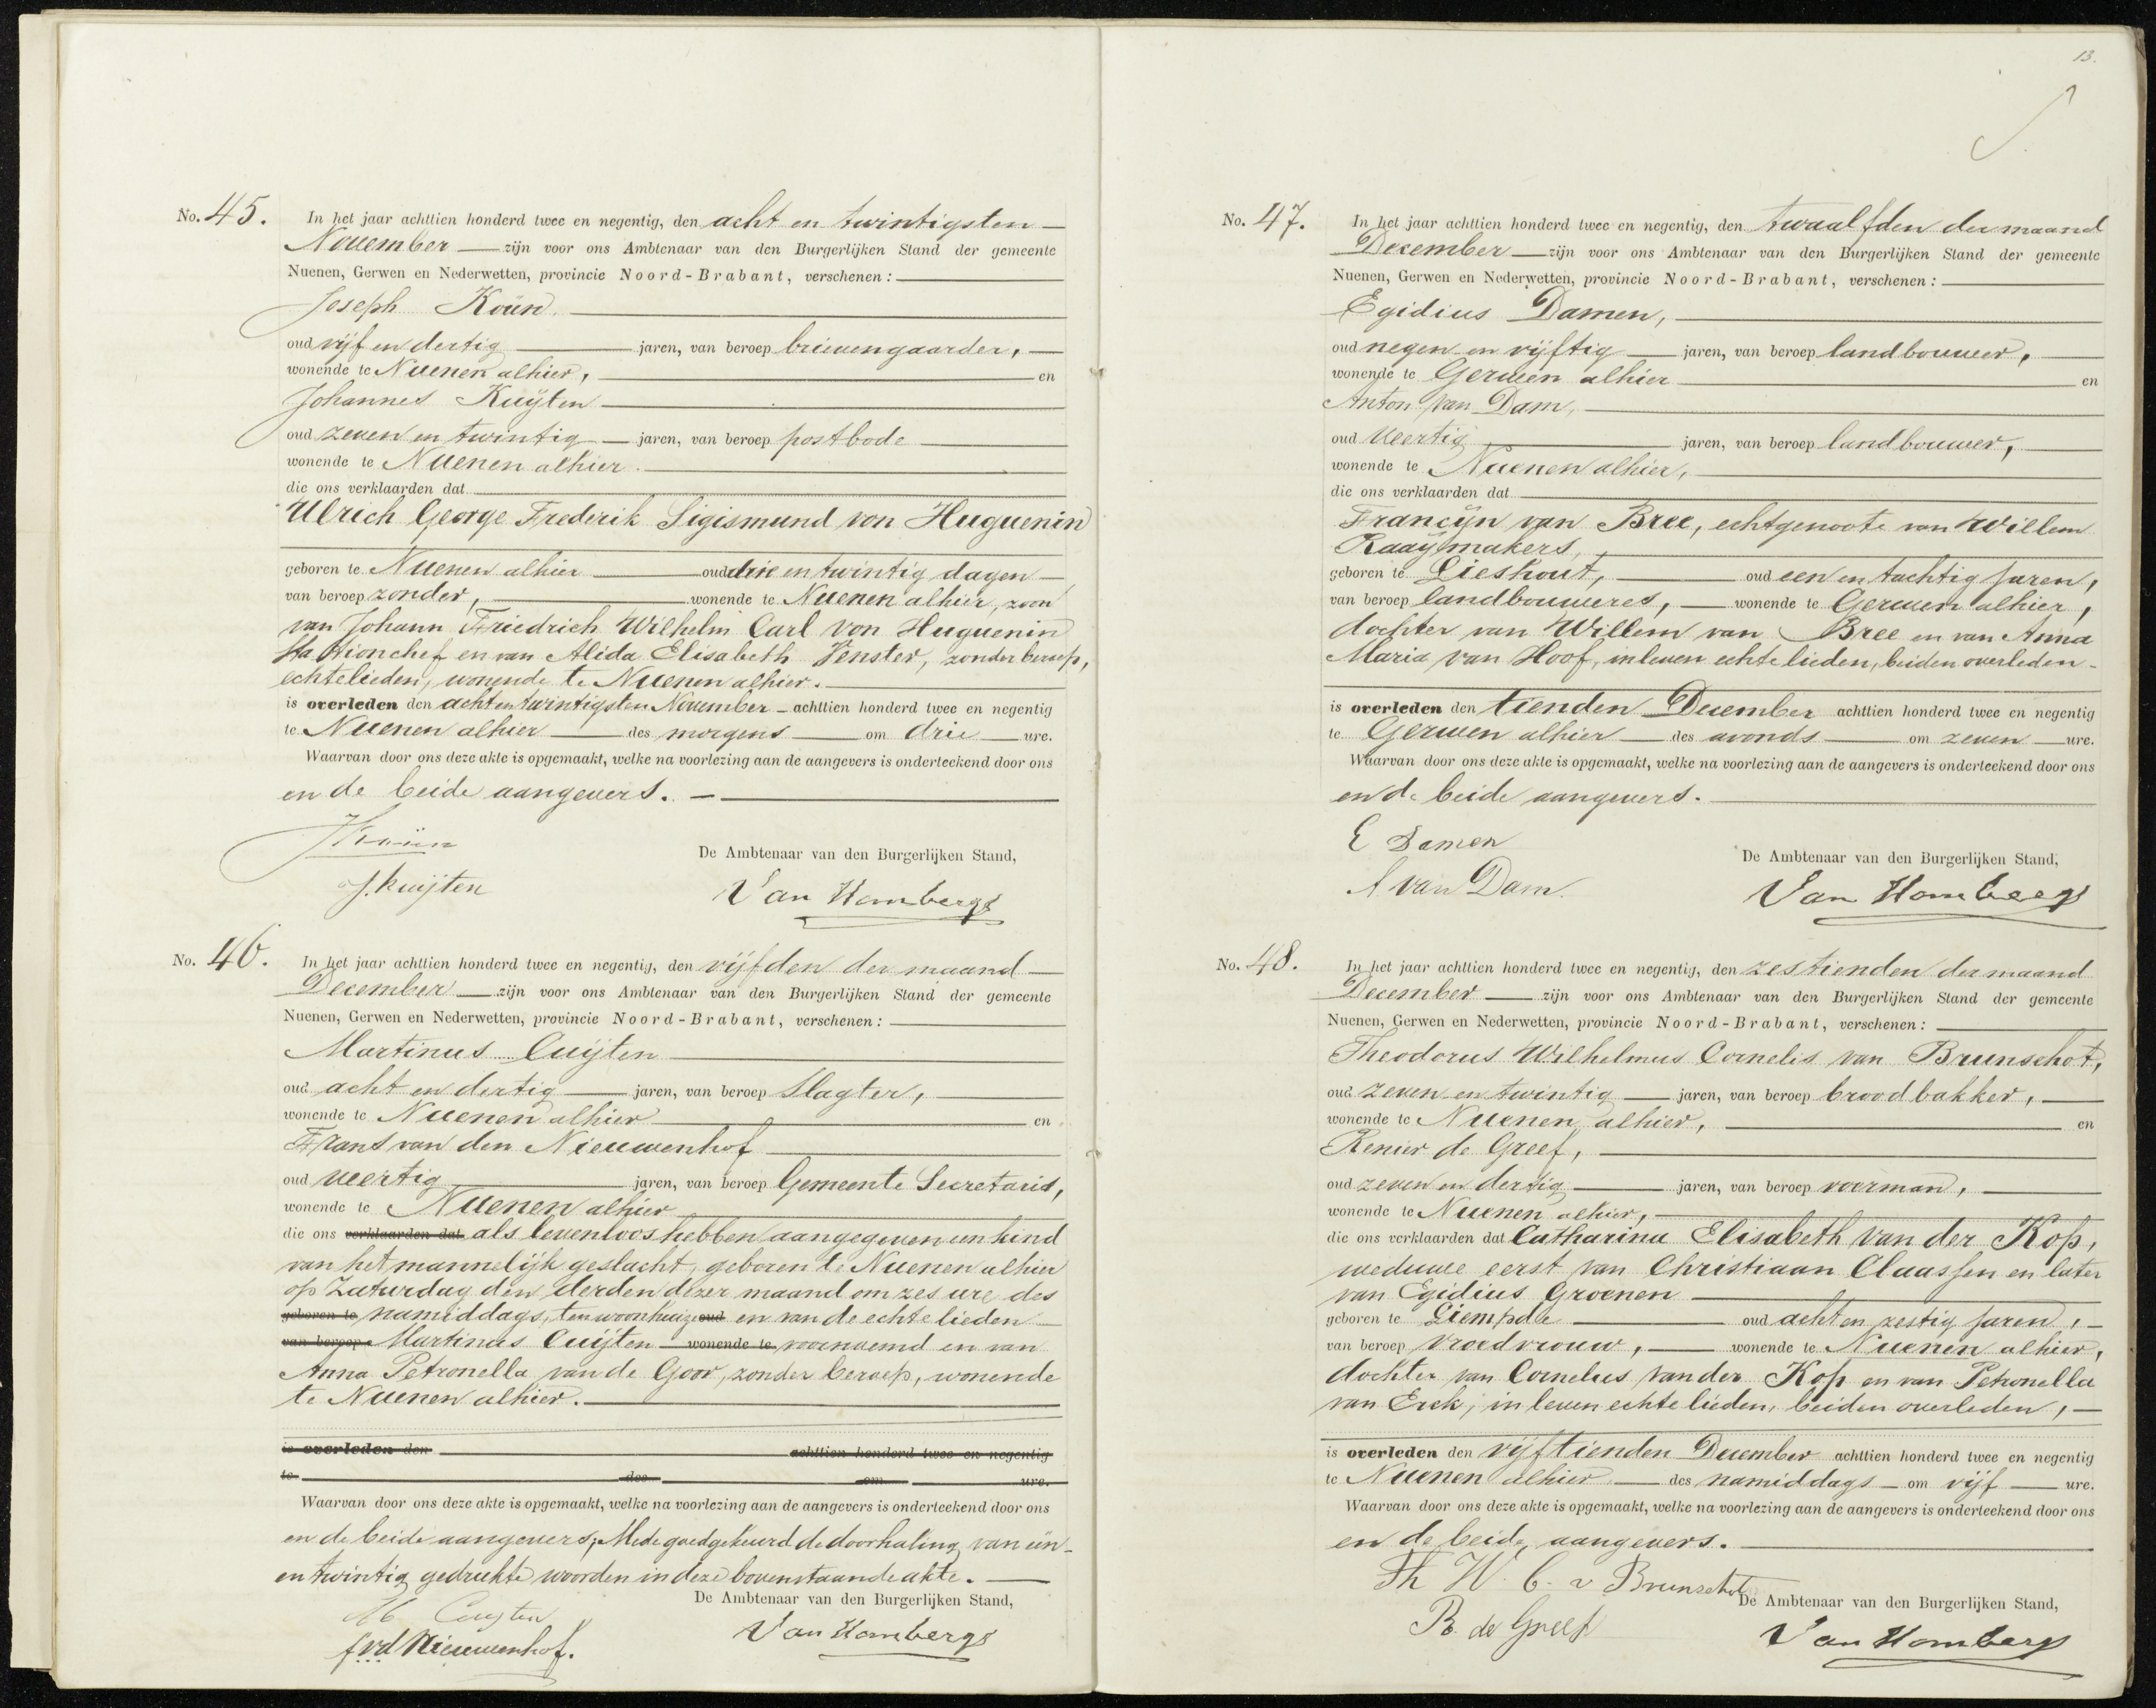 13.
No. 45. In het jaar achttien honderd twee en negentig, den acht en twintigsten
November zijn voor ons Ambtenaar van den Burgerlijken Stand der gemeente
Nuenen, Gerwen en Nederwetten, provincie Noord-Brabant, verschenen:
Joseph Koün
oud vijf en dertig jaren, van beroep brievengaarder,
wonende te Nuenen alhier, en
Johannes Kuijten
oud zeven en twintig jaren, van beroep postbode
wonende te Nuenen alhier.
die ons verklaarden dat
Ulrich George Frederik Sigismund von Huguenin
geboren te Nuenen alhier oud drie en twintig dagen
van beroep zonder, wonende te Nuenen alhier, zoon
van Johann Friedrich Wilhelm Carl von Huguenin
Stationchef en van Alida Elisabeth Venster, zonder beroep,
echtelieden, wonende te Nuenen alhier.
is overleden den acht en twintigsten November achttien honderd twee en negentig
te Nuenen alhier des morgens om drie ure.
Waarvan door ons deze akte is opgemaakt, welke na voorlezing aan de aangevers is onderteekend door ons
en de beide aangevers.
JKoün
De Ambtenaar van den Burgerlijken Stand,
J. Kuijten
Van Hombergh
No. 46. In het jaar achttien honderd twee en negentig, den vijfden der maand
December zijn voor ons Ambtenaar van den Burgerlijken Stand der gemeente
Nuenen, Gerwen en Nederwetten, provincie Noord-Brabant, verschenen:
Martinus Cuijten
oud acht en dertig jaren, van beroep Slagter,
wonende te Nuenen alhier en
Frans van den Nieuwenhof
oud veertig jaren, van beroep Gemeente Secretaris,
wonende te Nuenen alhier
die ons verklaarden dat als levenloos hebben aangegeven een kind
van het mannelijk geslacht, geboren te Nuenen alhier
op Zaturdag den derden dezer maand om zes ure des
geboren te namiddags, ten woonhuize oud en van de echtelieden
van beroep Martinus Cuijten wonende te voornoemd en van
Anna Petronella van de Goor, zonder beroep, wonende
te Nuenen alhier.
is overleden den achttien honderd twee en negentig
te des om ure.
Waarvan door ons deze akte is opgemaakt, welke na voorlezing aan de aangevers is onderteekend door ons
en de beide aangevers, Mede goedgekeurd de doorhaling van een
en twintig gedrukte woorden in deze bovenstaande akte.
De Ambtenaar van den Burgerlijken Stand,
M Cuyten
fvd Nieuwenhof.
Van Hombergh
No. 47. In het jaar achttien honderd twee en negentig, den twaalfden der maand
December zijn voor ons Ambtenaar van den Burgerlijken Stand der gemeente
Nuenen, Gerwen en Nederwetten, provincie Noord-Brabant, verschenen:
Egidius Damen,
oud negen en vijftig jaren, van beroep landbouwer,
wonende te Gerwen alhier en
Anton van Dam,
oud veertig jaren, van beroep landbouwer,
wonende te Nuenen alhier,
die ons verklaarden dat
Francijn van Bree, echtgenoote van Willem
Raaijmakers,
geboren te Lieshout, oud een en tachtig jaren,
van beroep landbouweres, wonende te Gerwen alhier,
dochter van Willem van Bree en van Anna
Maria van Hoof, in leven echtelieden, beiden overleden
is overleden den tienden December achttien honderd twee en negentig
te Gerwen alhier des avonds om zeven ure.
Waarvan door ons deze akte is opgemaakt, welke na voorlezing aan de aangevers is onderteekend door ons
en de beide aangevers.
E Damen
De Ambtenaar van den Burgerlijken Stand,
A van Dam.
Van Hombergh
No. 48. In het jaar achttien honderd twee en negentig, den zestienden der maand
December zijn voor ons Ambtenaar van den Burgerlijken Stand der gemeente
Nuenen, Gerwen en Nederwetten, provincie Noord-Brabant, verschenen:
Theodorus Wilhelmus Cornelis van Brunschot,
oud zeven en twintig jaren, van beroep broodbakker,
wonende te Nuenen alhier, en
Renier de Greef,
oud zeven en dertig jaren, van beroep voerman,
wonende te Nuenen alhier,
die ons verklaarden dat Catharina Elisabeth van der Kop,
weduwe eerst van Christiaan Claassen en later
van Egidius Groenen
geboren te Liempde oud acht en zestig jaren,
van beroep vroedvrouw, wonende te Nuenen alhier,
dochter van Cornelus van der Kop en van Petronella
van Erck, in leven echtelieden, beiden overleden,
is overleden den vijftienden December achttien honderd twee en negentig
te Nuenen alhier des namiddags om vijf ure.
Waarvan door ons deze akte is opgemaakt, welke na voorlezing aan de aangevers is onderteekend door ons
en de beide aangevers.
Th W. C. v Brunschot
De Ambtenaar van den Burgerlijken Stand,
R de Greef
Van Hombergh